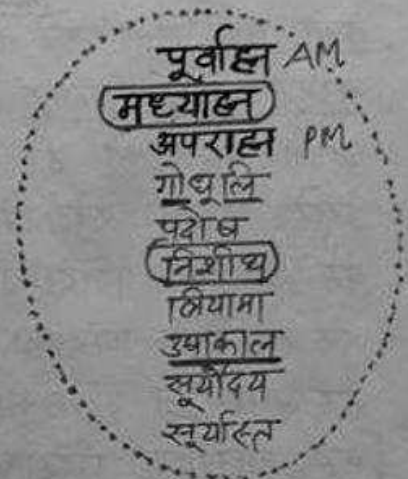 पूर्वाह्न AM
मध्याह्न
अपराह्न PM
गोधूलि
प्रदोष
निशीथ
त्रियामा
उषाकाल
सूर्योदय
सूर्यास्त